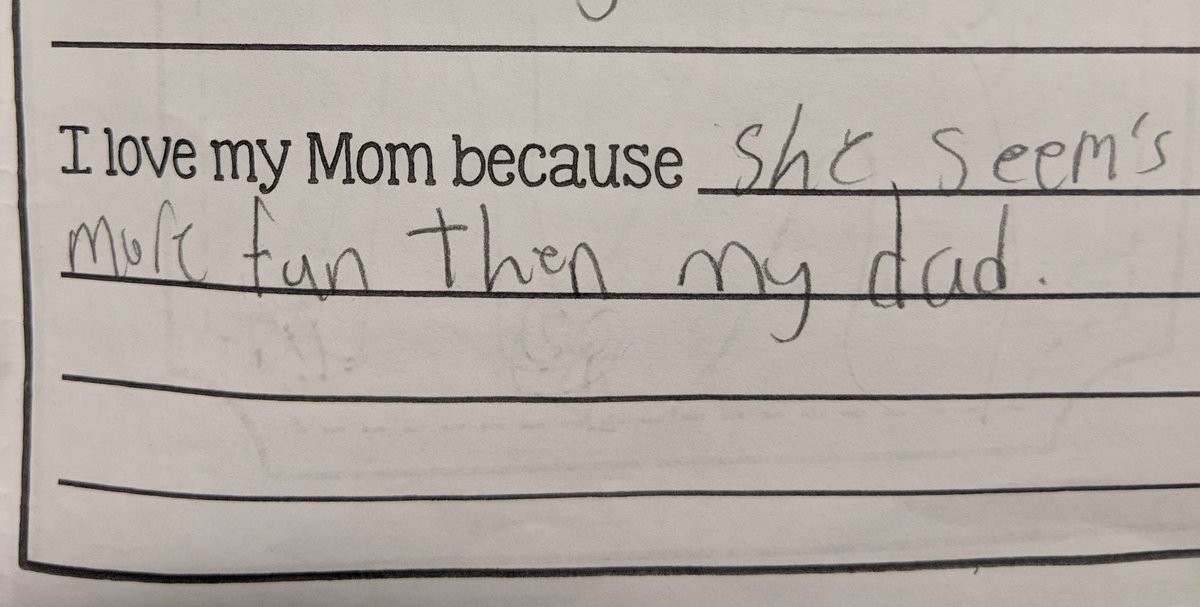 I love my Mom because she seem's
more fun then my dad.